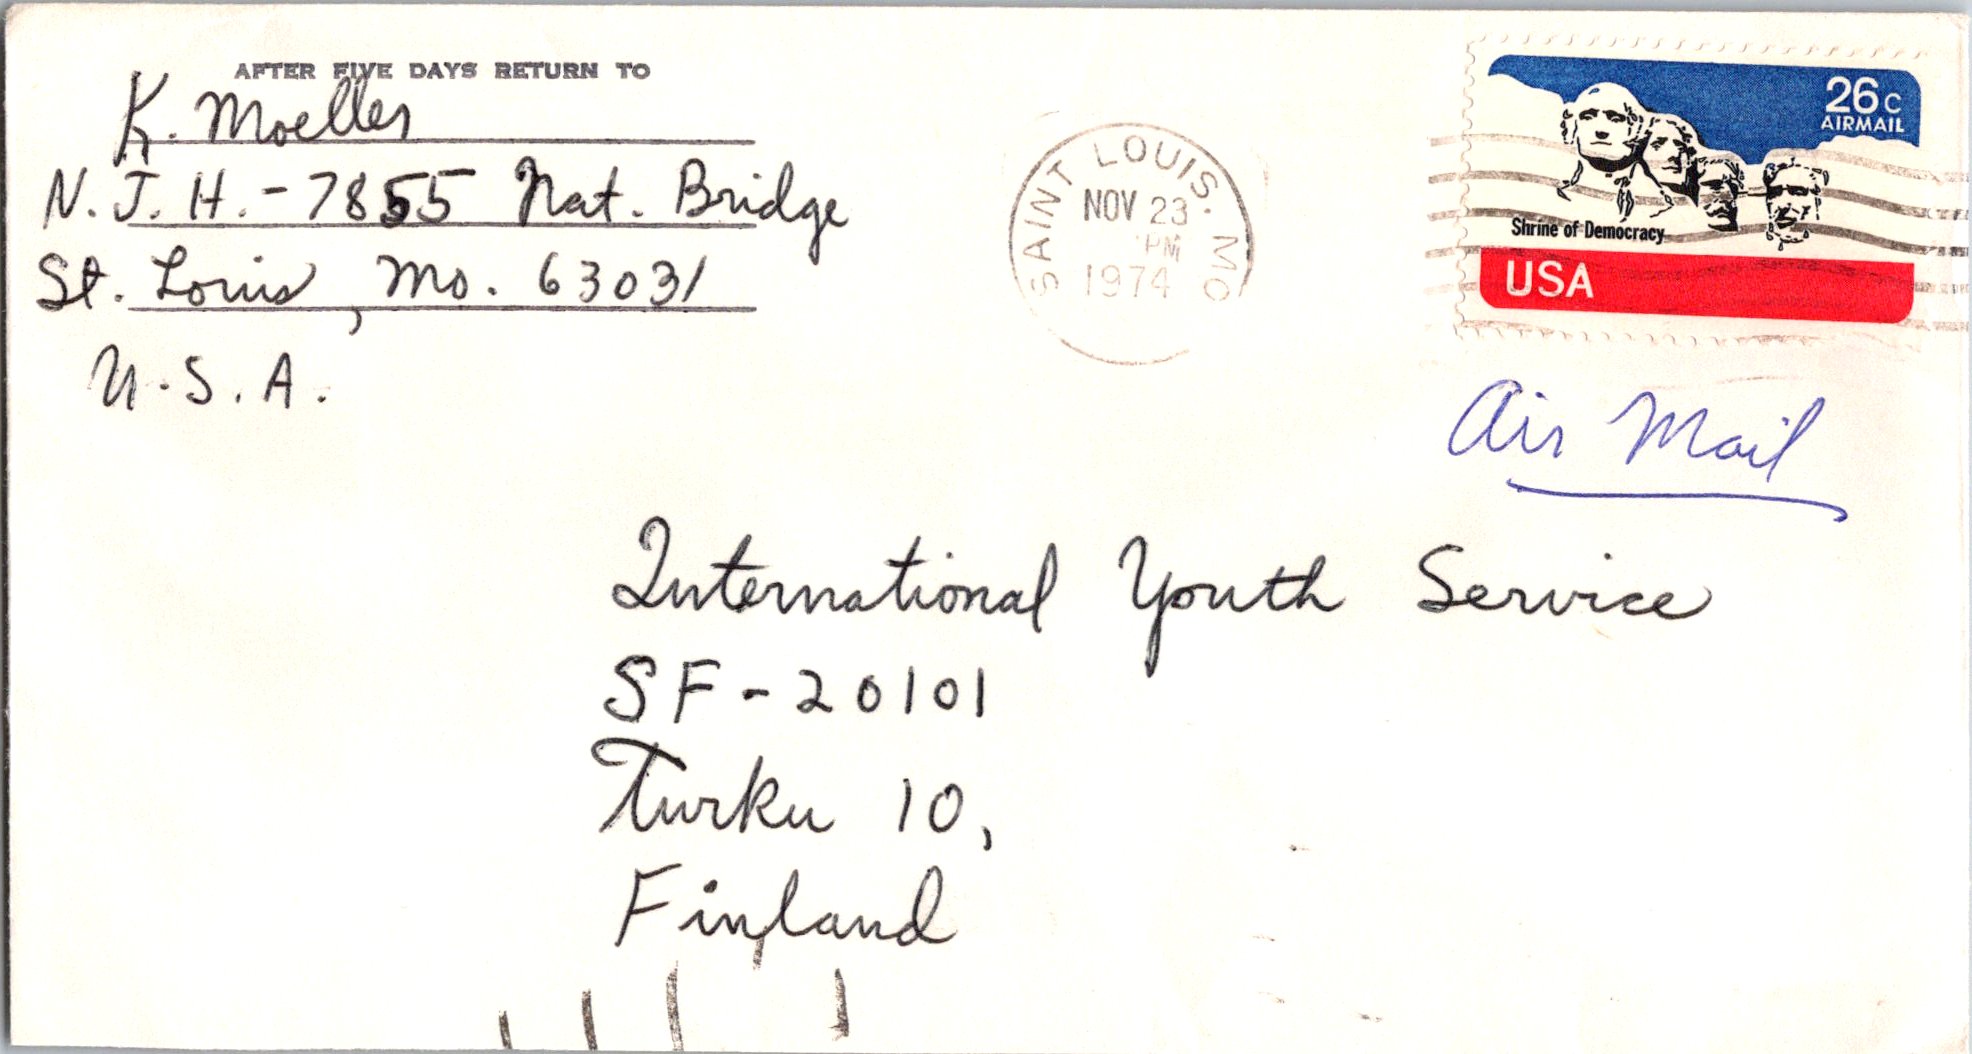 AFTER FIVE DAYS RETURN TO
K. Moeller
N.J.H. - 7855 Nat. Bridge
St. Louis, Mo. 63031
U.S.A.
SAINT LOUIS. MO
NOV 23
PM
1974
26c
AIRMAIL
Shrine of Democracy
USA
Air Mail
International Youth Service
SF-20101
Turku 10,
Finland